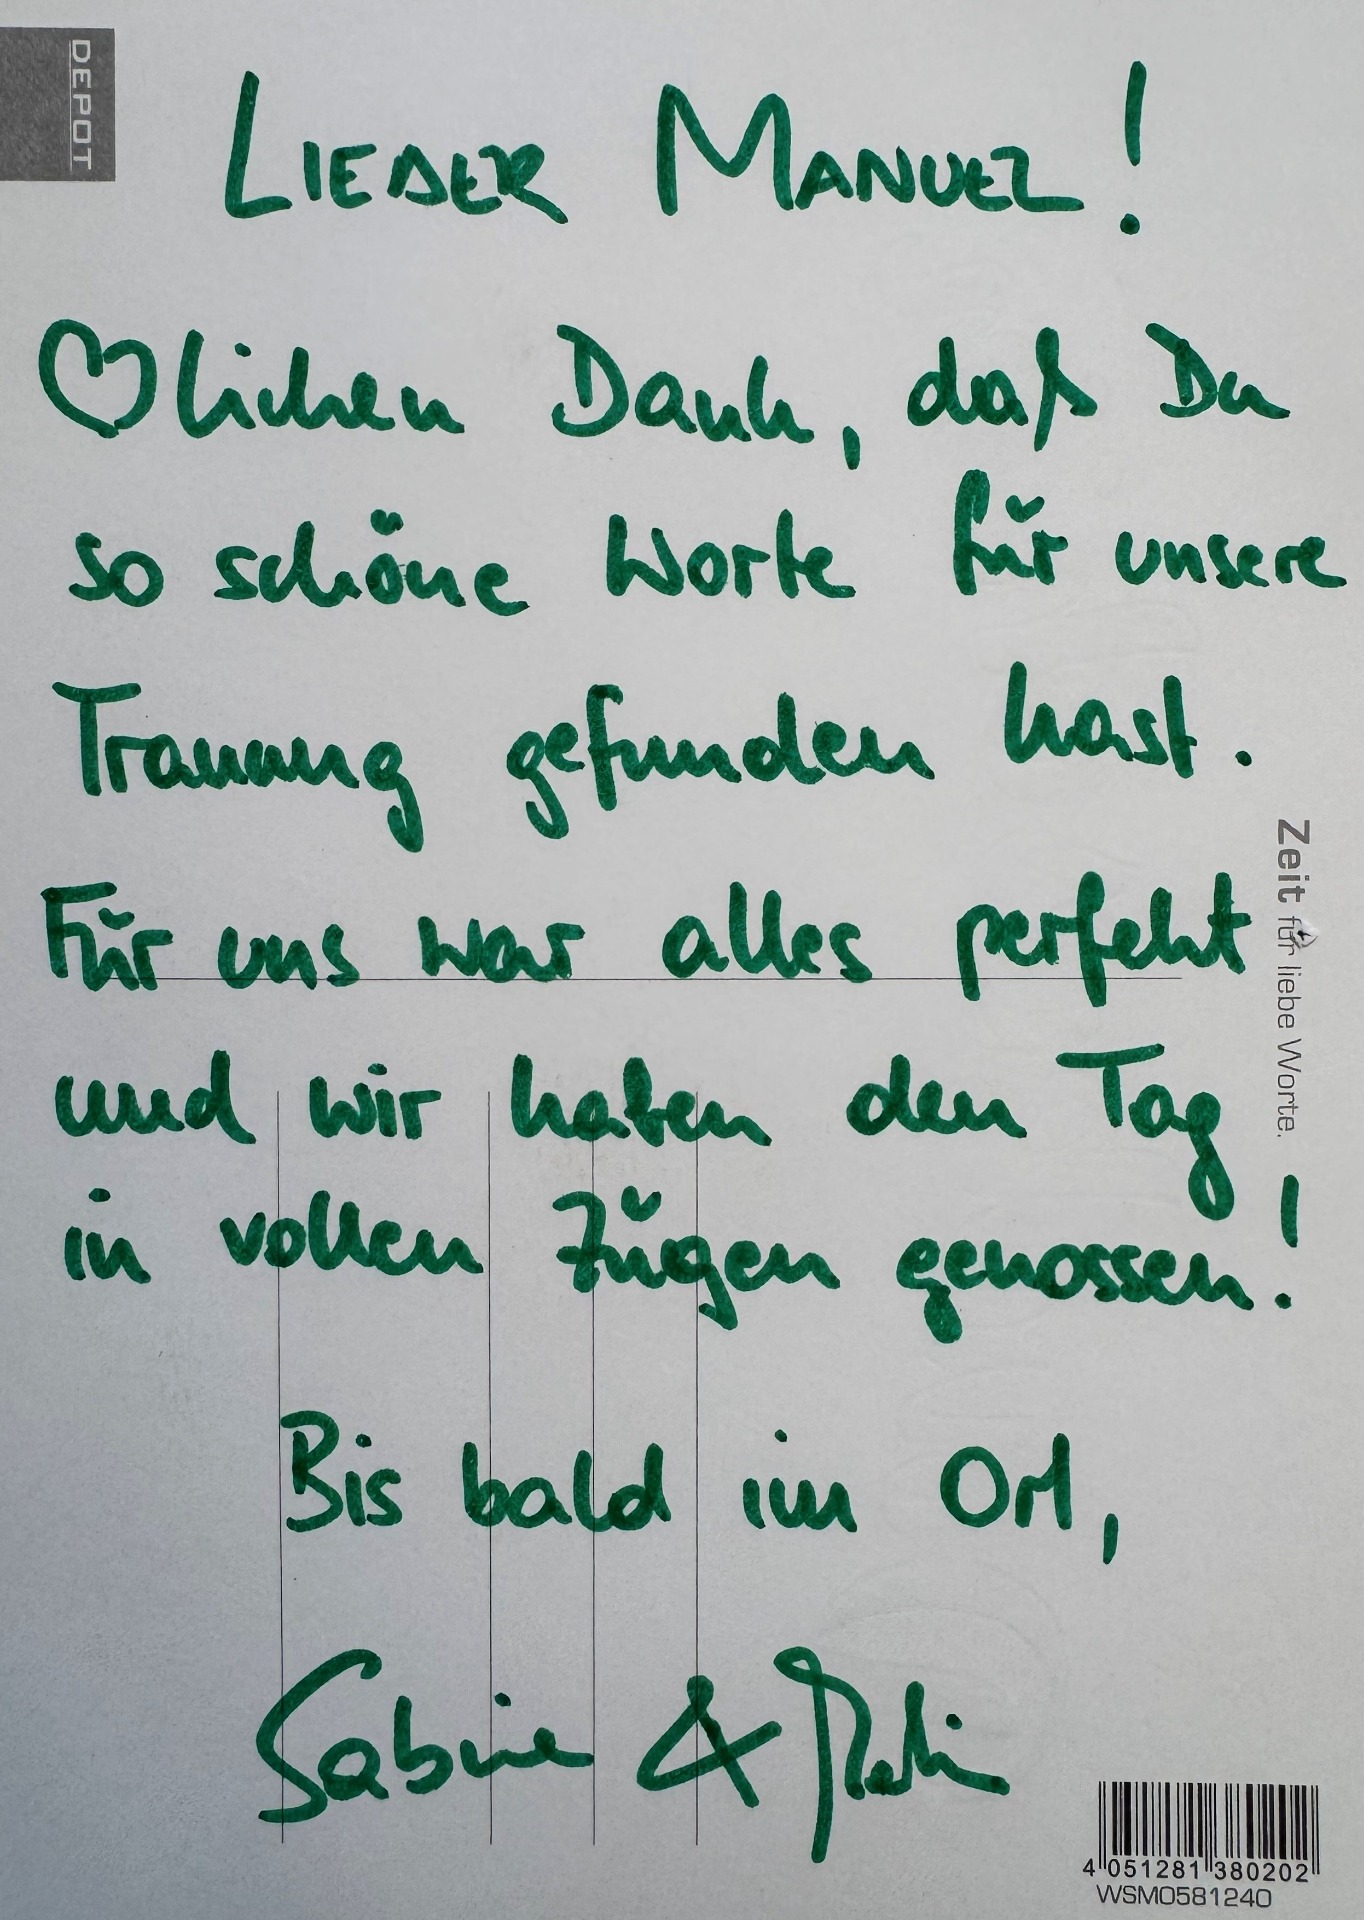 DEPOT
LIEBER MANUEL!
♡lichen Dank, daß Du
so schöne Worte für unsere
Trauung gefunden hast.
Für uns war alles perfekt
und wir haben den Tag
in vollen Zügen genossen!
Bis bald im Ort,
Sabine &
Zeit für liebe Worte.
4 051281 380202
WSM0581240